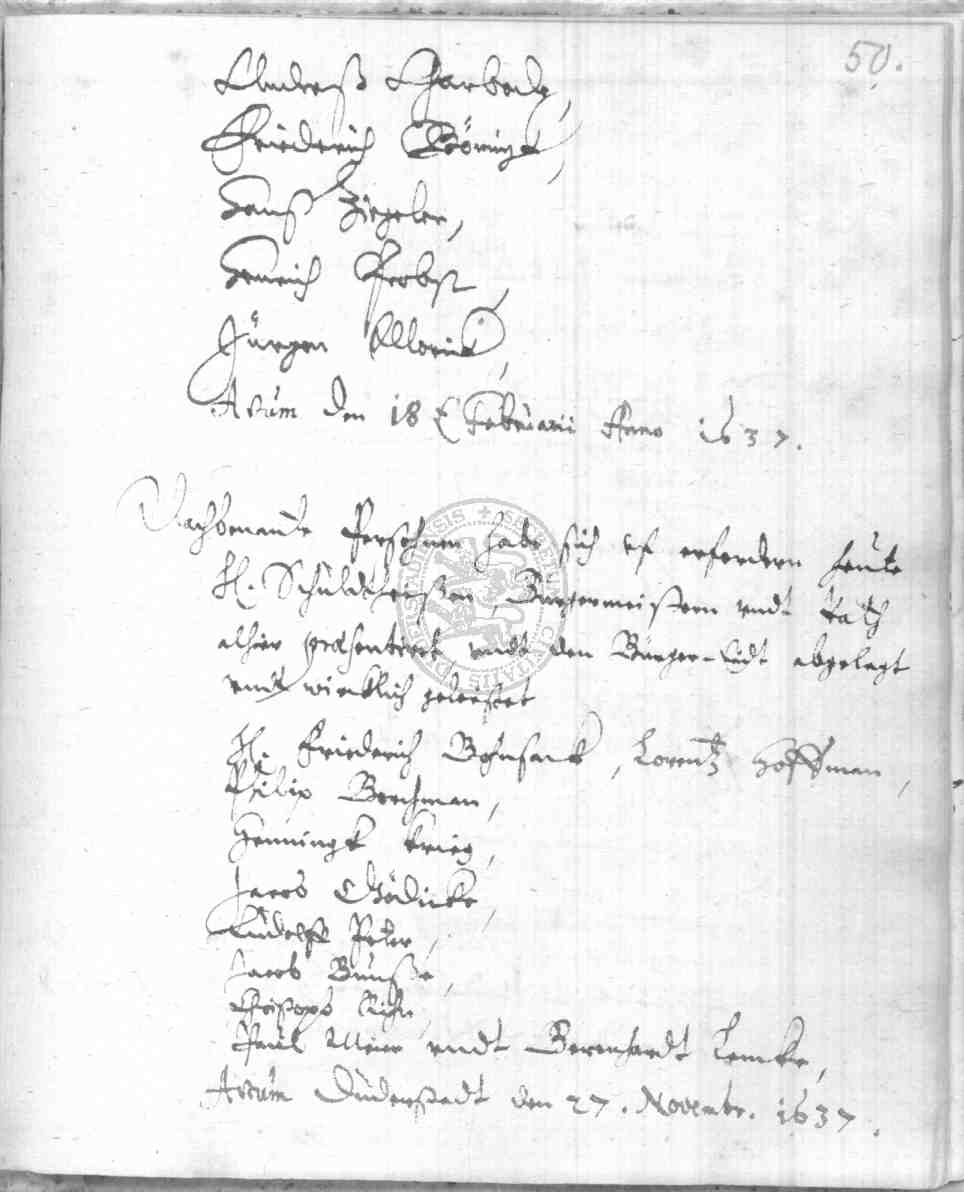 50.
Anderß Charbode,
Friederich Böningk,
Hanß Ziegeler,
Henrich Probst,
Jürgen
Actum den 18 t Februarii Anno 1637.
Nachbenandte Persohnen habe sich uf erfordern heute
H. Schuldtheißen, Bürgermeistern undt Rath
alhier præsentiret, undt den Bürger-Eidt abgelegt
undt wircklich geleistet
H. Friederich Bohnsack, Lorentz Hoffman,
Philip Borchman,
Henningk Krieg,
Jacob Gödicke,
Ludolff Peter,
Jacob Bunße,
Christoph
Paul Meier undt Berenhardt Lemcke,
Actum Duderstadt den 27. Novembr. 1637.